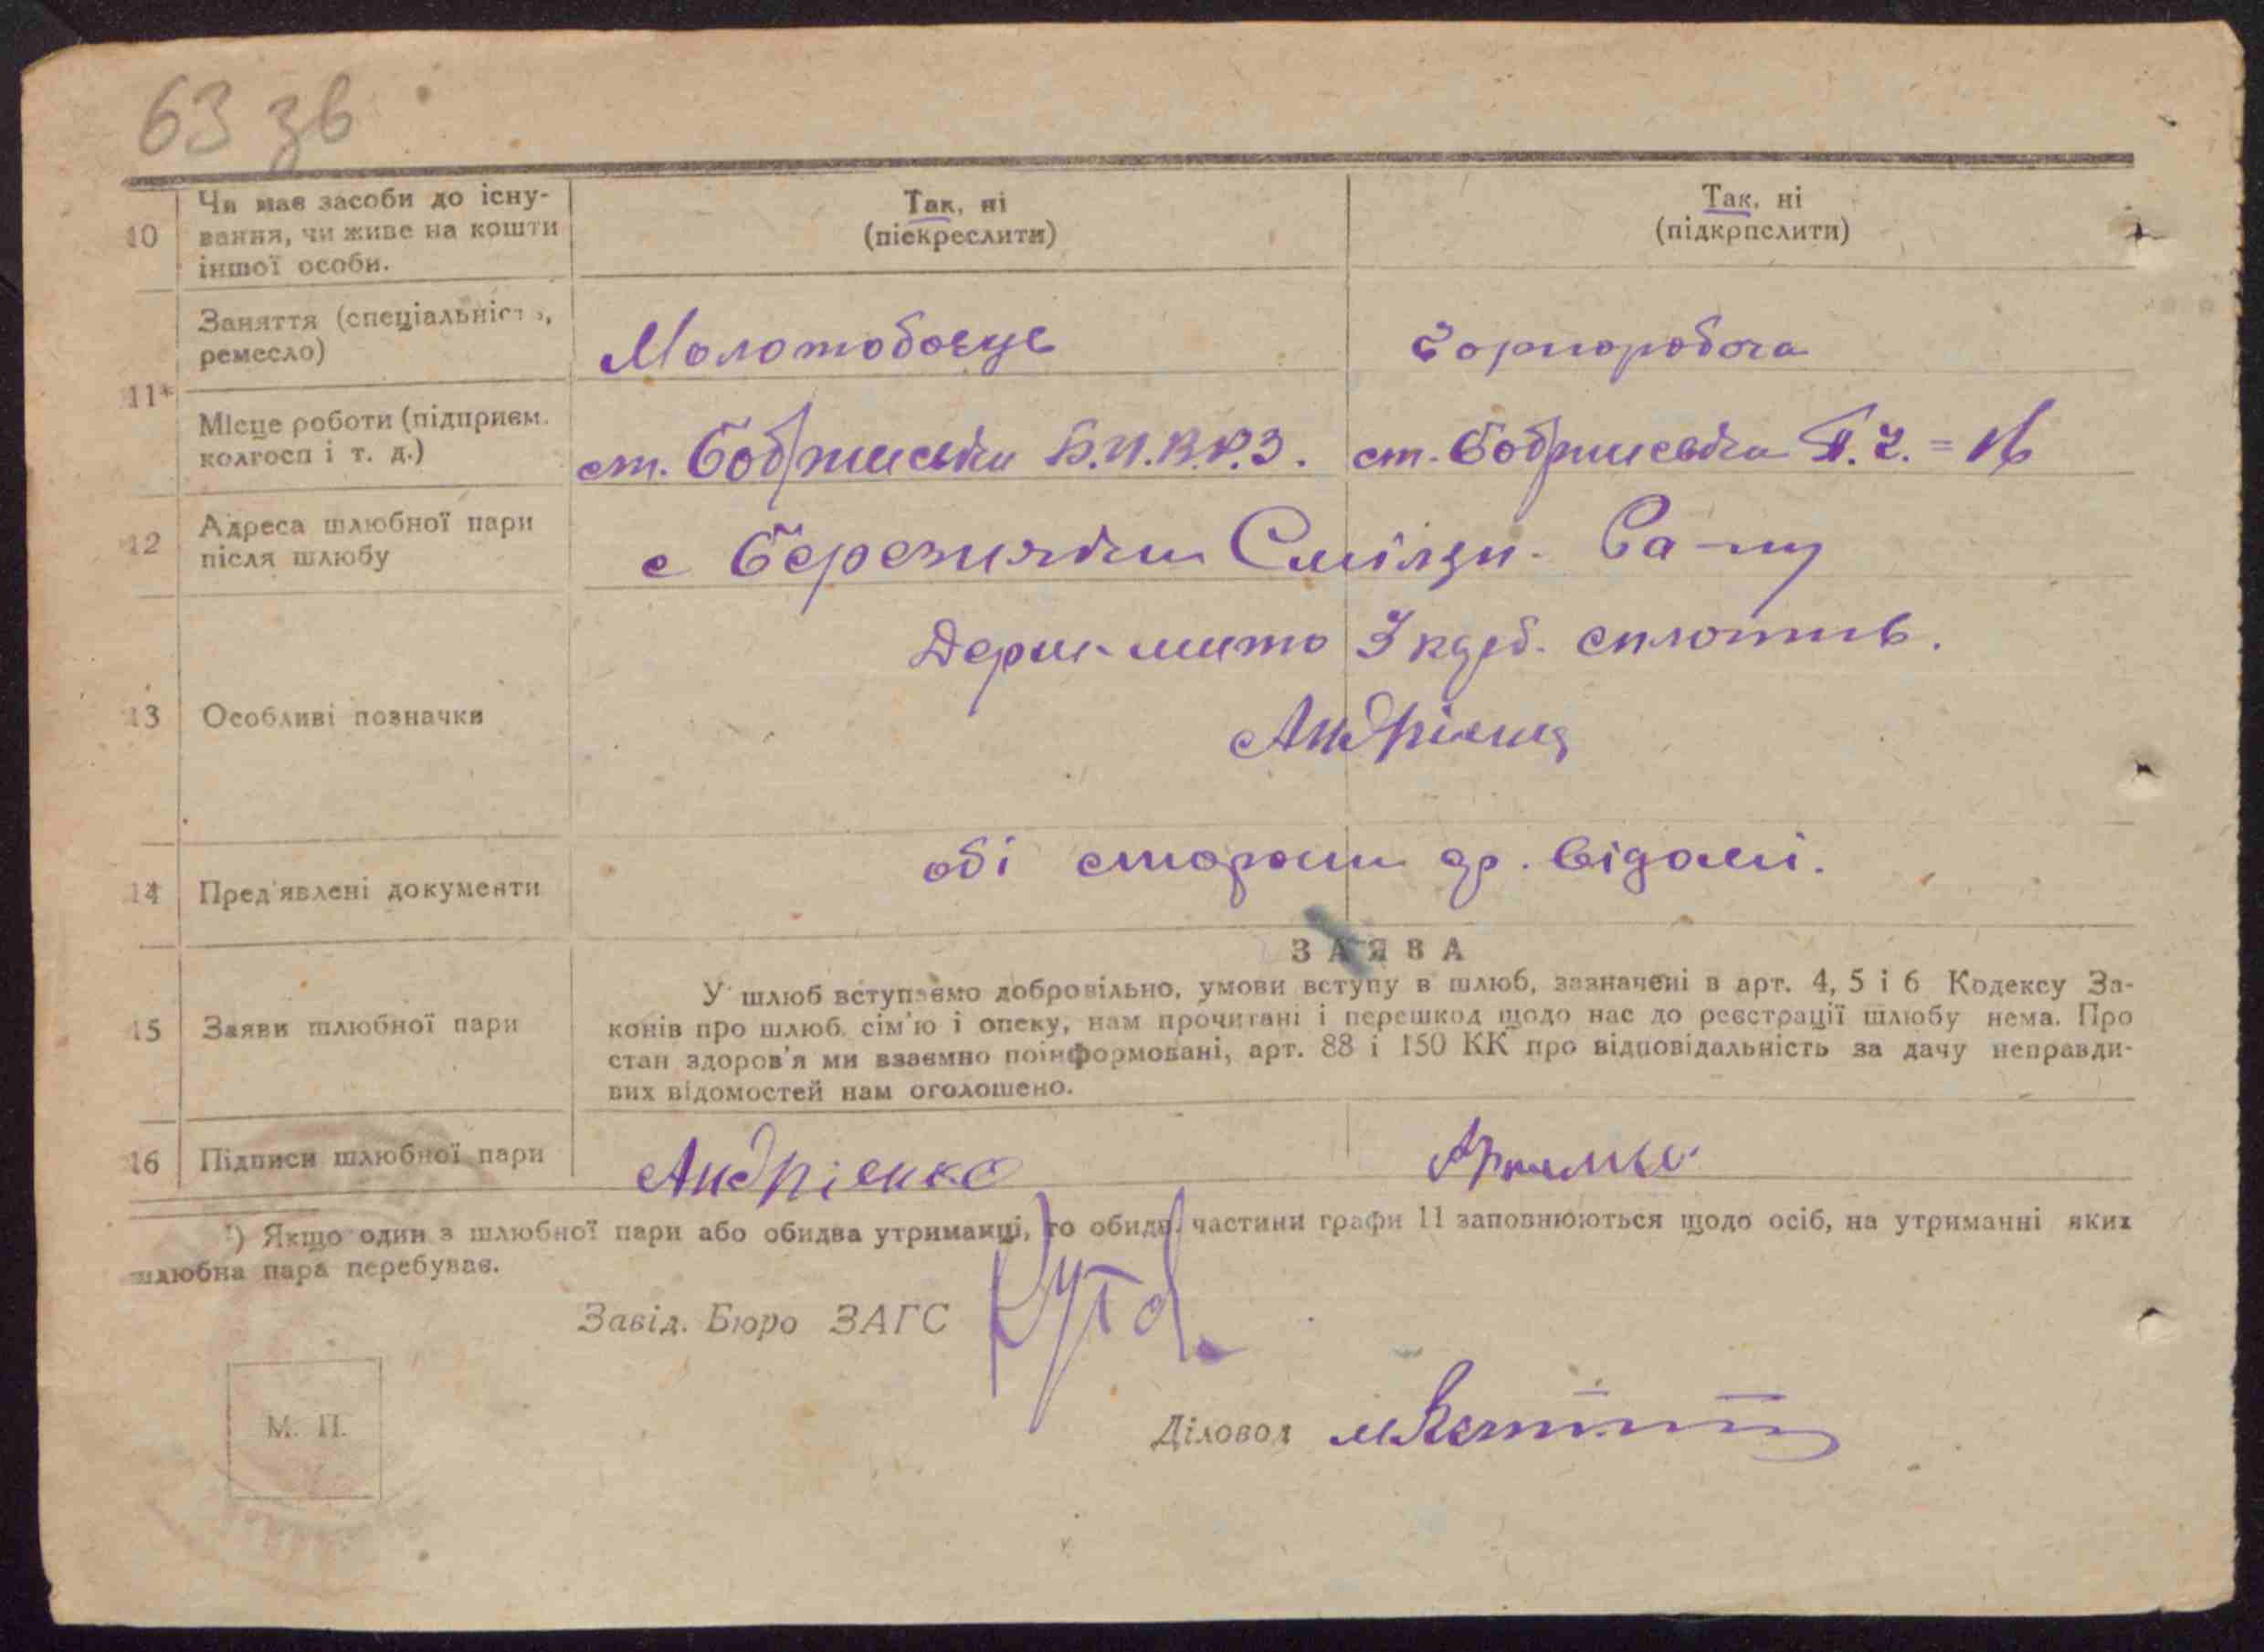 63 зв
10 Чи має засоби до існу-
вання, чи живе на кошти
іншої особи.
Так, ні
(піекреслити)
Так, ні
(підкрпслити)
11* Заняття (спеціальність,
ремесло)
Молотобоець
Чорноробоча
Місце роботи (підприєм.
колгосп і т. д.)
ст. Бобринська
ст. Бобринська П.Ч. = 16
12 Адреса шлюбної пари
після шлюбу
с Березняки Смілян. Ра-ну
13 Особливі позначки
Держ-мито 3 крб. сплотив.
14 Пред'явлені документи
обі сторони др. відомі.
15 Заяви шлюбної пари
ЗАЯВА
У шлюб вступаємо добровільно, умови вступу в шлюб, зазначені в арт. 4, 5 і 6 Кодексу За-
конів про шлюб, сім'ю і опеку, нам прочитані і перешкод щодо нас до реєстрації шлюбу нема. Про
стан здоров'я ми взаємно поінформовані, арт. 88 і 150 КК про відповідальність за дачу неправди-
вих відомостей нам оголошено.
16 Підписи шлюбної пари
Андрієнко
¹) Якщо один з шлюбної пари або обидва утриманці, то обидві частини графи 11 заповнюються щодо осіб, на утриманні яких
шлюбна пара перебуває.
Завід. Бюро ЗАГС
М. П.
Діловод